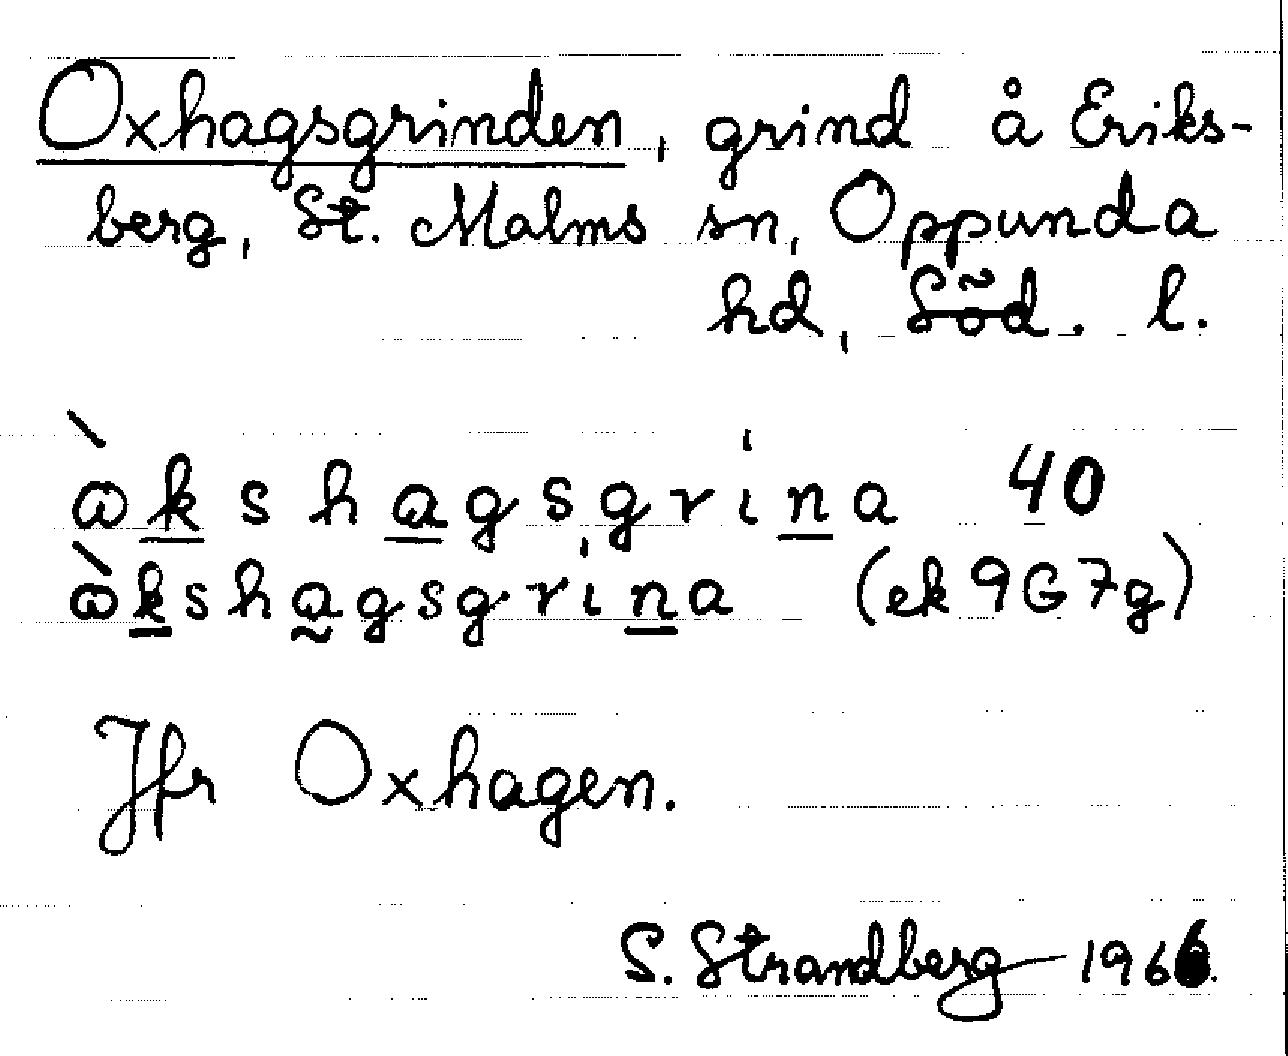 Oxhagsgrinden, grind å Eriks-
berg, St. Malms sn, Oppunda
hd, Söd. l.
ὼkshagsgrina 40
ὼkshagsgrina (ek 9G7g)
Jfr Oxhagen.
S. Strandberg 1966.